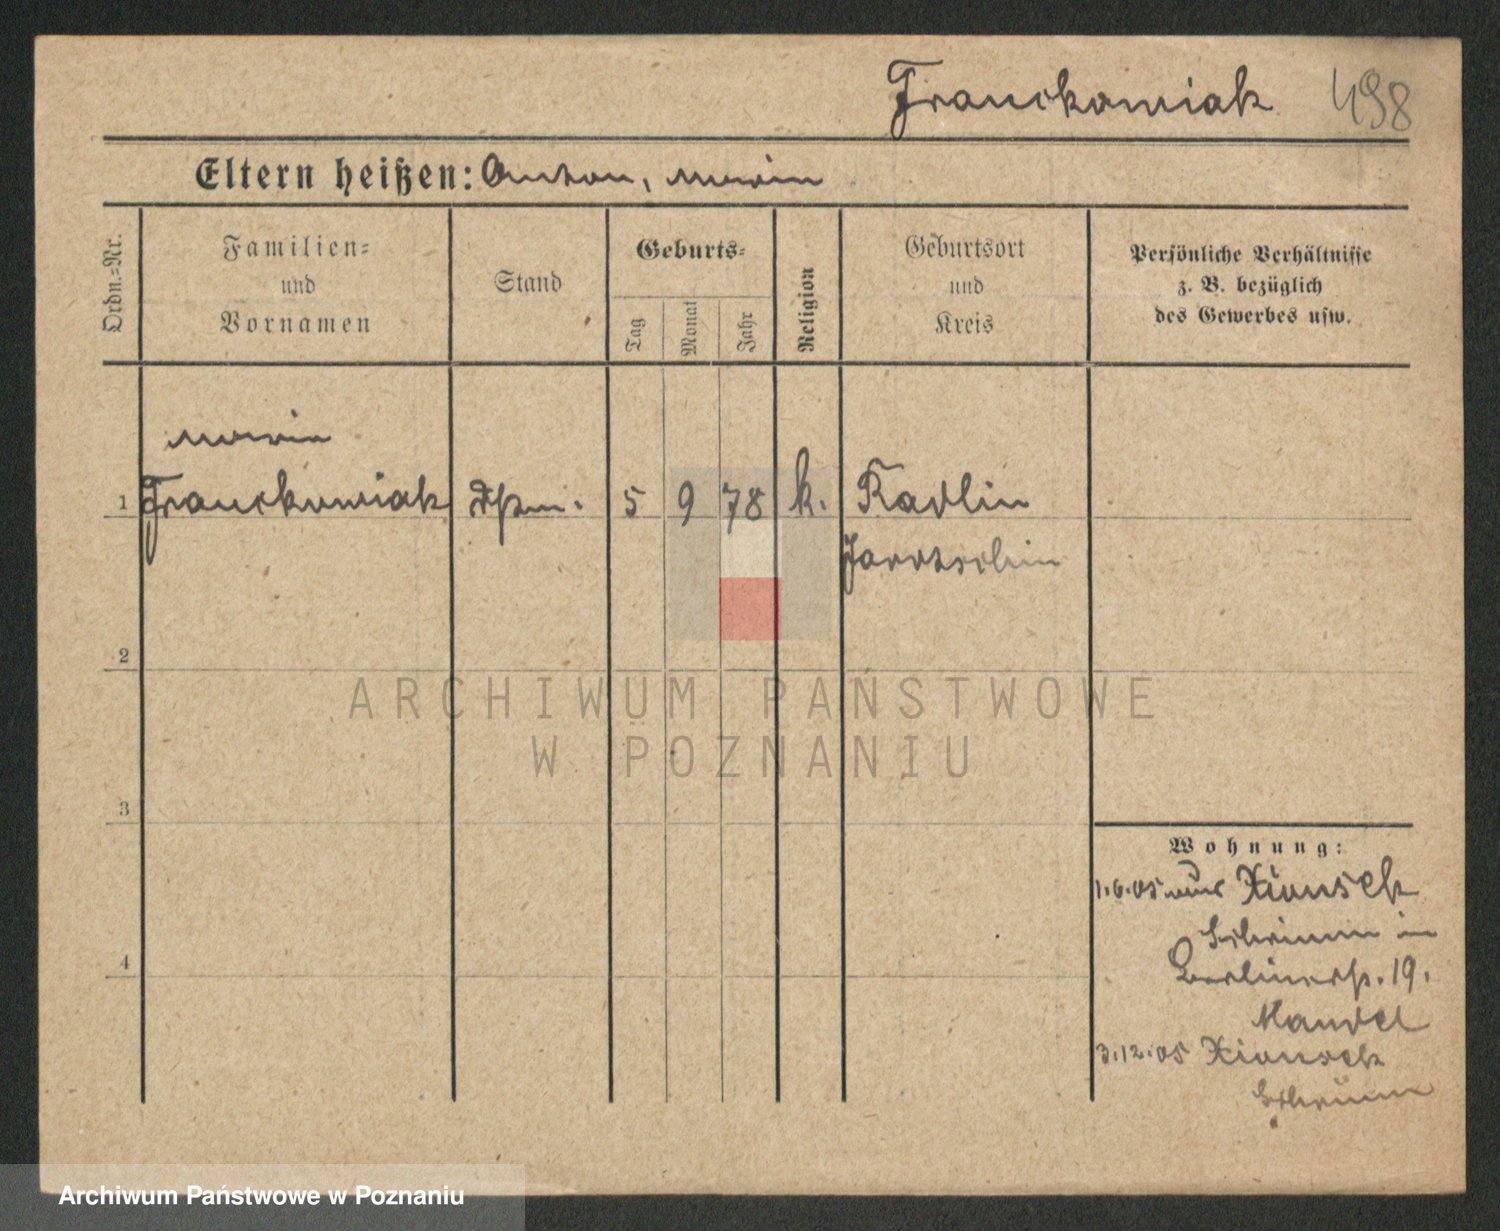 Franckowiak 498
Eltern heißen: Anton, Maria
Ordn.=Nr.
Familien=
und
Vornamen
Stand
Geburts=
Tag
Monat
Jahr
Religion
Geburtsort
und
Kreis
Persönliche Verhältnisse
z. B. bezüglich
des Gewerbes usw.
Maria
1 Franckowiak 5 9 78 k. Radlin
Jarotschin
2
ARCHIWUM PAŃSTWOWE
W POZNANIU
3
Wohnung:
1.6.05 aus Xionsck
Schrimm in
Berlinerstr. 19.
Mandel
3.12.05 Xionsek
Schrimm
4
Archiwum Państwowe w Poznaniu